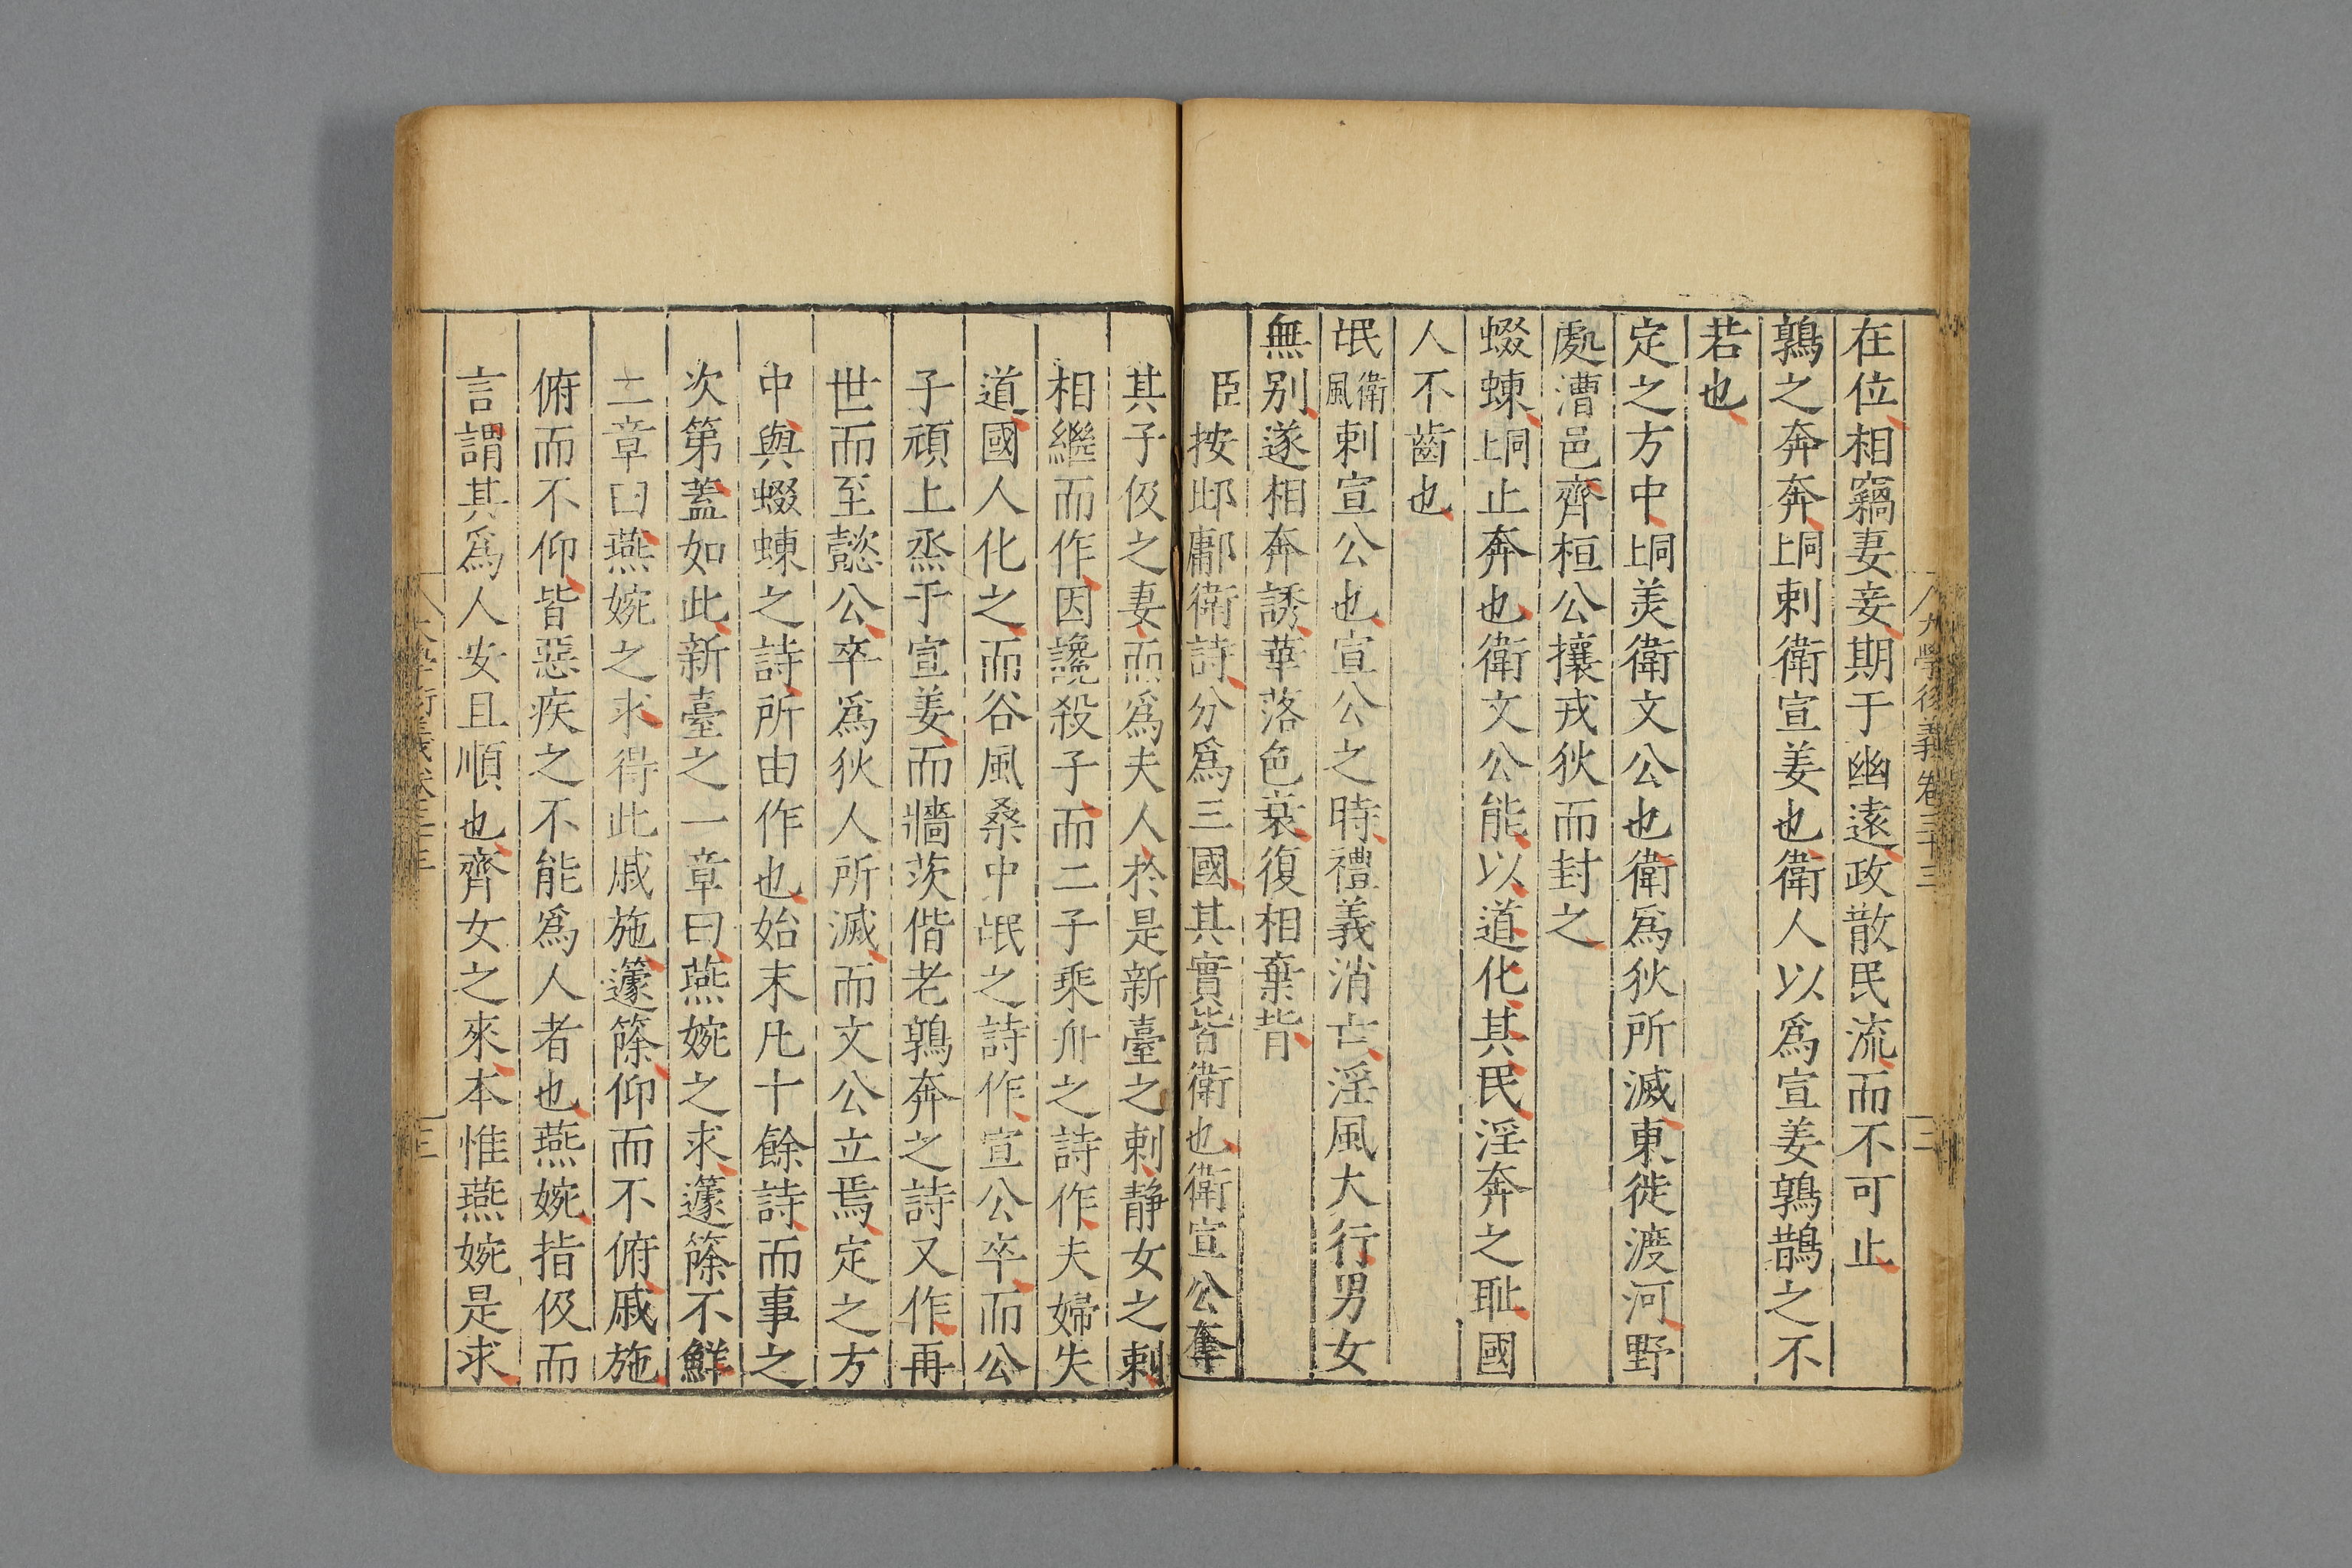 在位相竊妻妾期于幽遠政散民流而不可止
鶉之奔奔同上刺衛宣姜也衛人以爲宣姜鶉鵲之不
若也
定之方中同上美衛文公也衛爲狄所滅東徙渡河野
處漕邑齊桓公攘戎狄而封之
蝃蝀同上止奔也衛文公能以道化其民淫奔之耻國
人不齒也
氓衛風刺宣公也宣公之時禮義消亡淫風大行男女
無别遂相奔誘華落色衰復相棄背
臣按邶鄘衛詩分爲三國其實皆衛也衛宣公奪
其子伋之妻而爲夫人於是新臺之刺静女之刺
相繼而作因讒殺子而二子乘舟之詩作夫婦失
道國人化之而谷風桑中氓之詩作宣公卒而公
子頑上烝于宣姜而牆茨偕老鶉奔之詩又作再
世而至懿公卒爲狄人所滅而文公立焉定之方
中與蝃蝀之詩所由作也始末凡十餘詩而事之
次第蓋如此新臺之一章曰燕婉之求籧篨不鮮
二章曰燕婉之求得此戚施籧篨仰而不俯戚施
俯而不仰皆惡疾之不能爲人者也燕婉指伋而
言謂其爲人安且順也齊女之來本惟燕婉是求